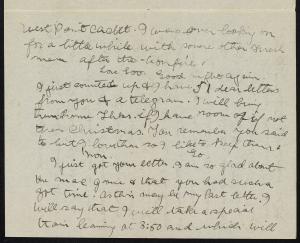 West Point cadet. I was over looking on
for a little while with some other
men after the bonfire.
Good night again.
I just counted up & I have 51 dear letters
from you & a telegram. I will bring
them home if I have room if not
then Christmas. You remember you said
to I like to keep them
I just got your letter. I am so glad about
the & that you had such a
got time. As this may be my last letter I
will say that I will take a special
train leaving at 3:50 and which will